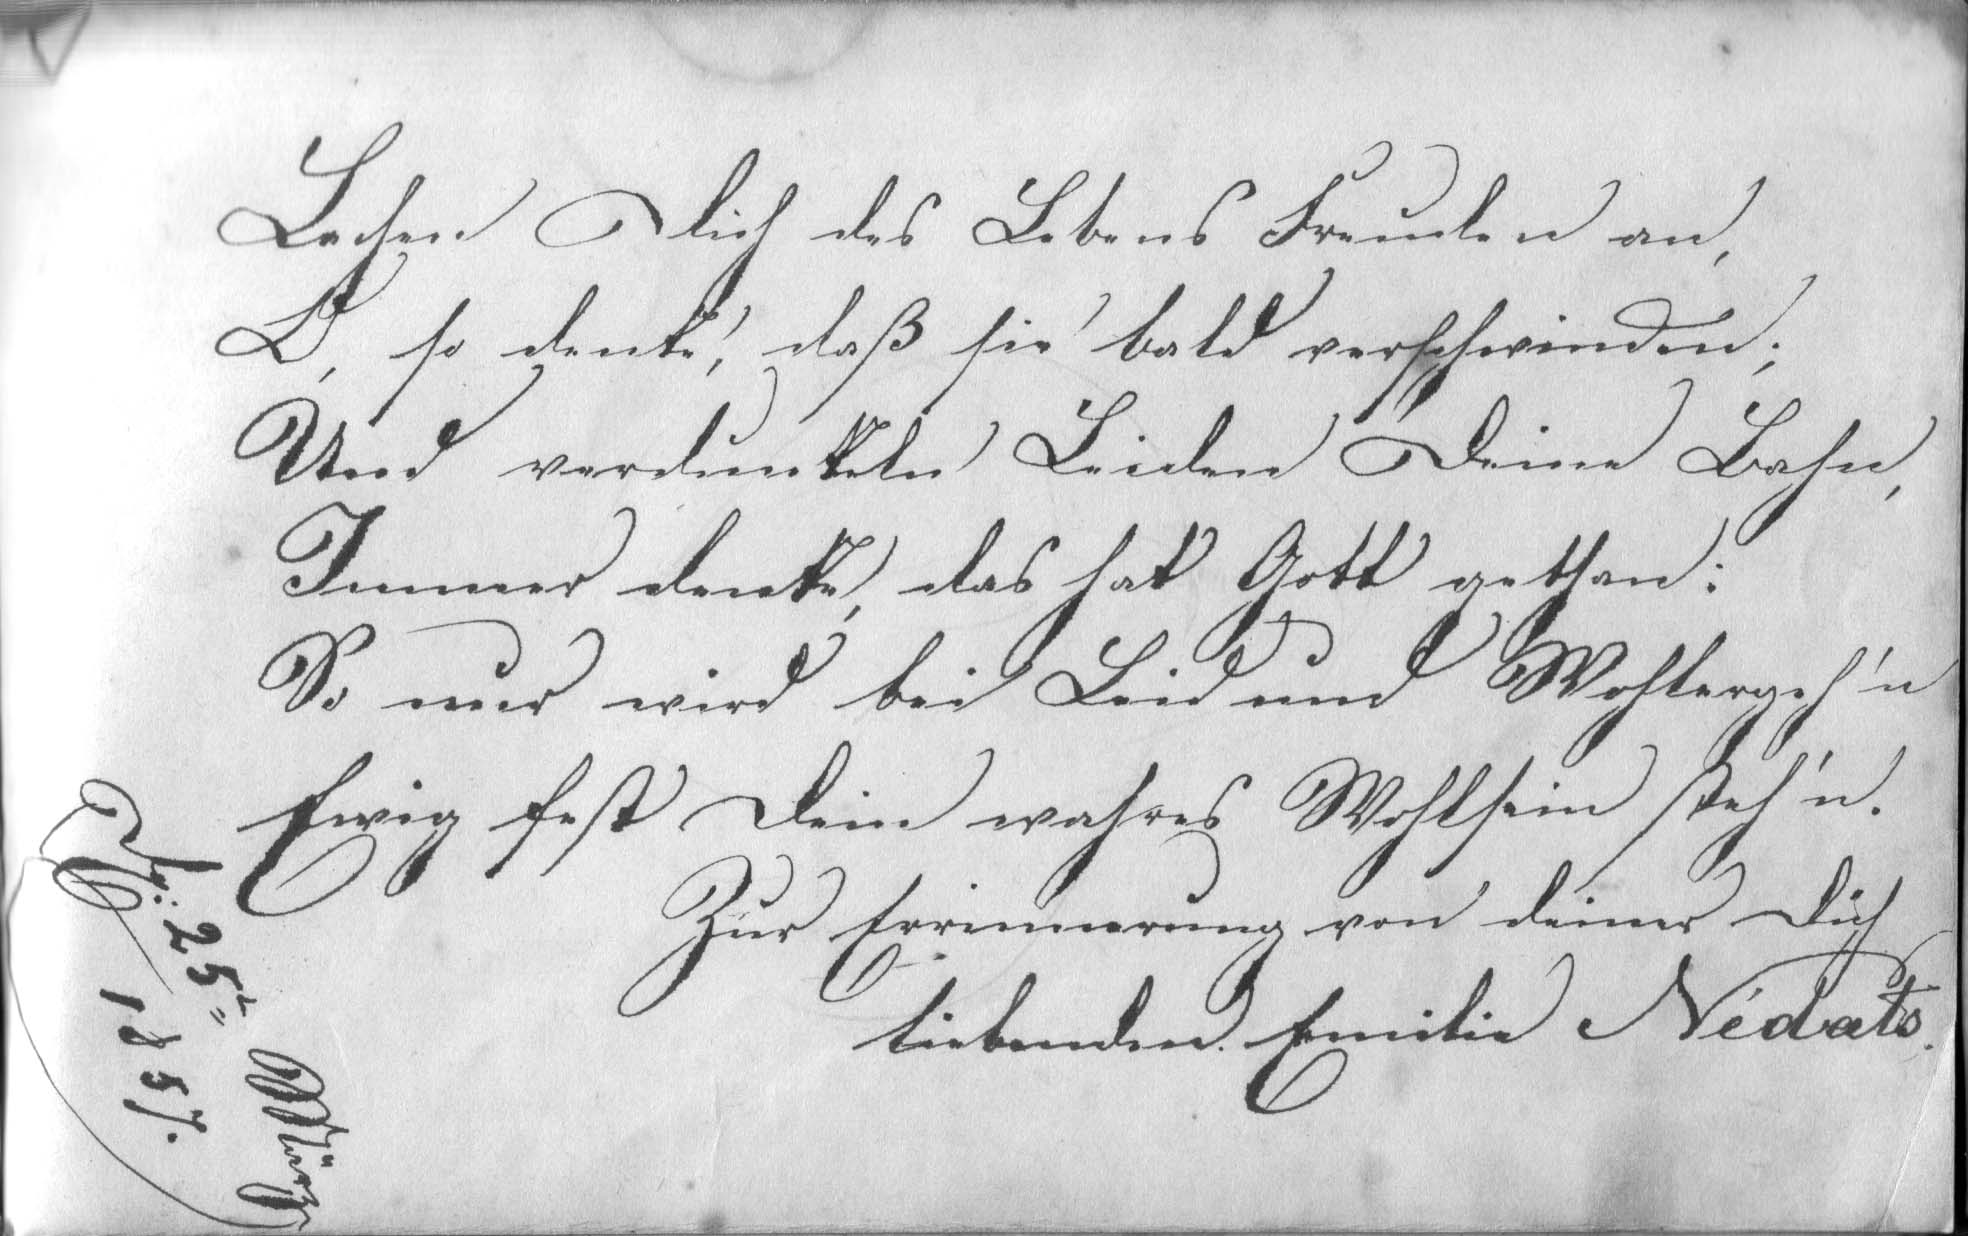 Lachen Dich des Lebens Freuden an,
O, so denke', daß sie bald verschwinden;
Und verdunkeln Leiden Deine Bahn,
Immer denke, das hat Gott gethan:
So nur wird bei Leid und Wohlergeh'n
Ewig fest Dein wahres Wohlsein steh'n.
Zur Errinnerung von deiner Dich
liebenden Emilie Nédats.
25t März
1857.